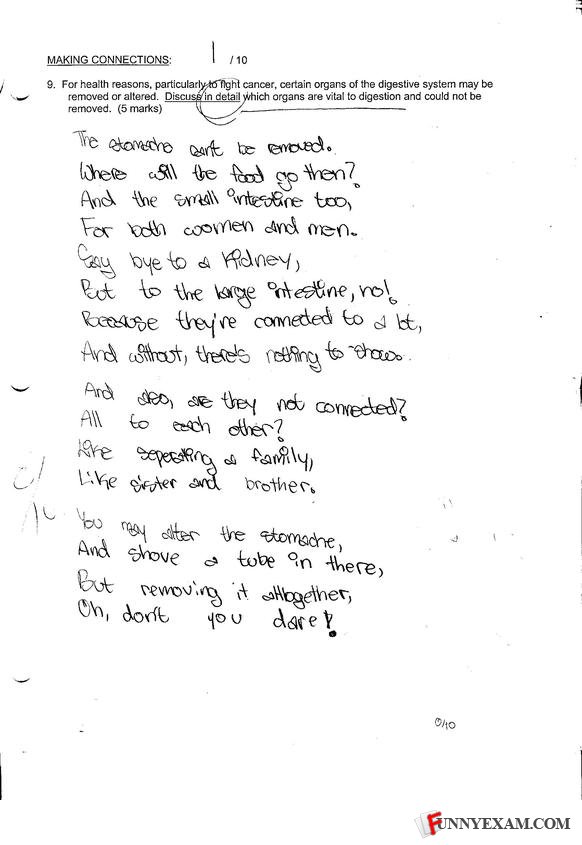 MAKING CONNECTIONS: 1 / 10
9. For health reasons, particularly to fight cancer, certain organs of the digestive system may be
removed or altered. Discuss in detail which organs are vital to digestion and could not be
removed. (5 marks)
The stomache can't be removed.
Where will the food go then?
And the small intestine too,
For both women and men.
Say bye to a Kidney,
But to the large intestine, no!
Because they're connected to a lot,
And without, there's nothing to show.
And also, are they not connected?
All to each other?
Like seperating a family,
Like sister and brother.
You may alter the stomache,
And shove a tube in there,
But removing it alltogether,
Oh, don't you dare!
0/10
FUNNYEXAM.COM